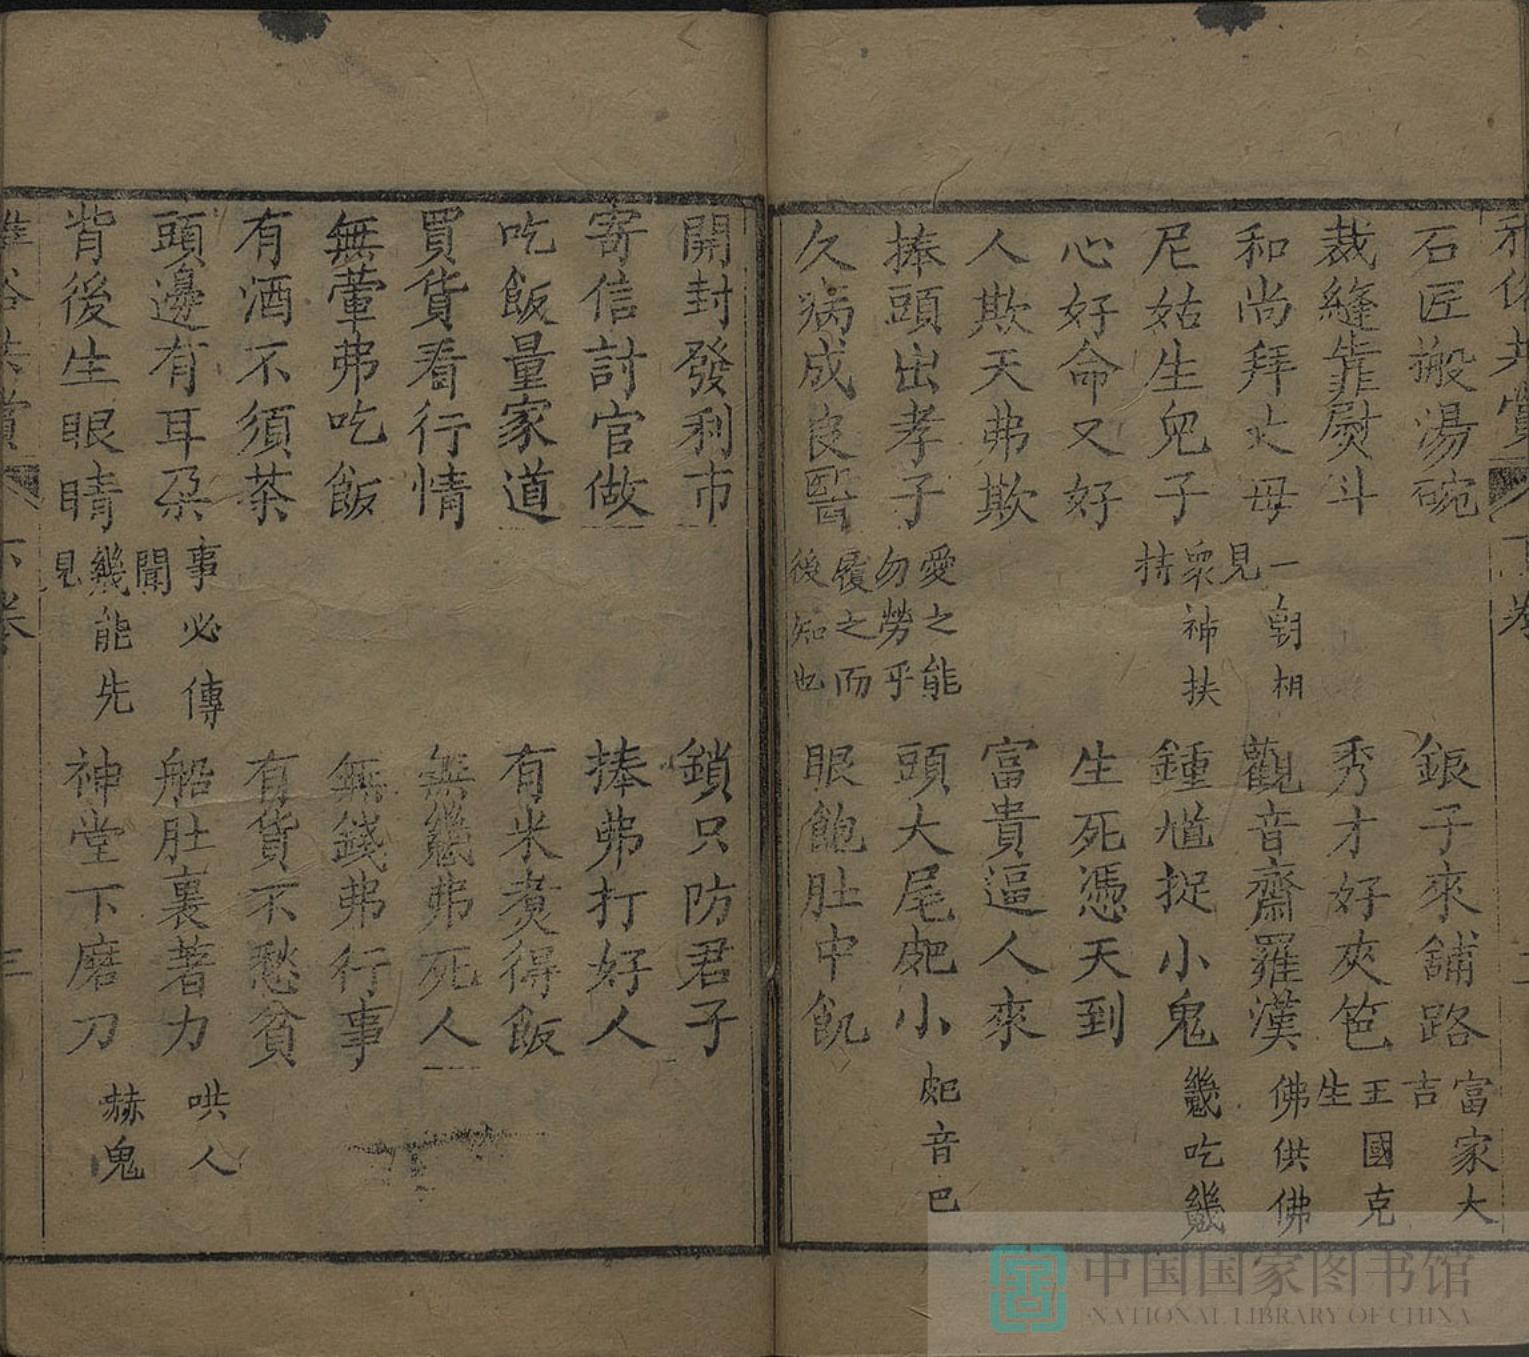 雅俗共賞 下卷 二
石匠搬湯碗
銀子來舖路 富家大吉
裁縫靠熨斗
秀才好夾笆 王國克生
和尚拜丈母 一朝相見
觀音齋羅漢 佛供佛
尼姑生兒子 衆神扶持
鍾馗捉小鬼 幾吃幾
心好命又好
生死憑天到
人欺天弗欺
富貴逼人來
捧頭出孝子 愛之能勿勞乎
頭大尾小 音巴
久病成良醫 履之而後知也
眼飽肚中飢
開封發利市
鎖只防君子
寄信討官做
捧弗打好人
吃飯量家道
有米煑得飯
買貨看行情
無幾弗死人
無葷弗吃飯
無錢弗行事
有酒不須茶
有貨不愁貧
頭邊有耳朶 事必傳聞
船肚裏著力 哄人
背後生眼睛 幾能先見
神堂下磨刀 赫鬼
雅俗共賞 下卷 三
中国国家图书馆
NATIONAL LIBRARY OF CHINA